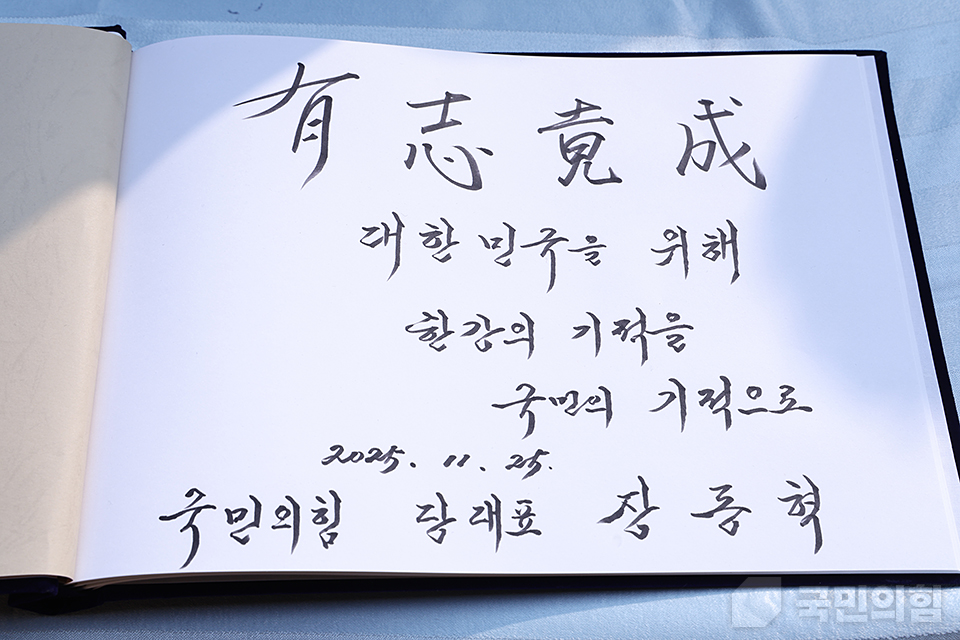 有志竟成
대한민국을 위해
한강의 기적을
국민의 기적으로
2025. 11. 25.
국민의힘 당대표 장동혁
국민의힘